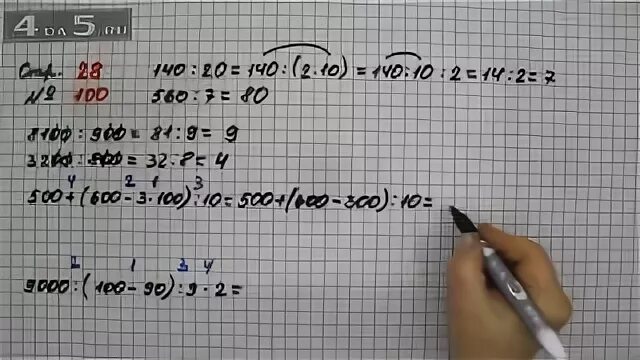 4·на 5.ru
Стр. 28 140 : 20 = 140 : (2·10) = 140 : 10 : 2 = 14 : 2 = 7
№ 100 560 : 7 = 80
8100 : 900 = 81 : 9 = 9
3200 : 800 = 32 : 8 = 4
4 2 1 3
500 + (600 - 3·100) : 10 = 500 + (600 - 300) : 10 =
2 1 3 4
9000 : (100 - 90) : 9 · 2 =